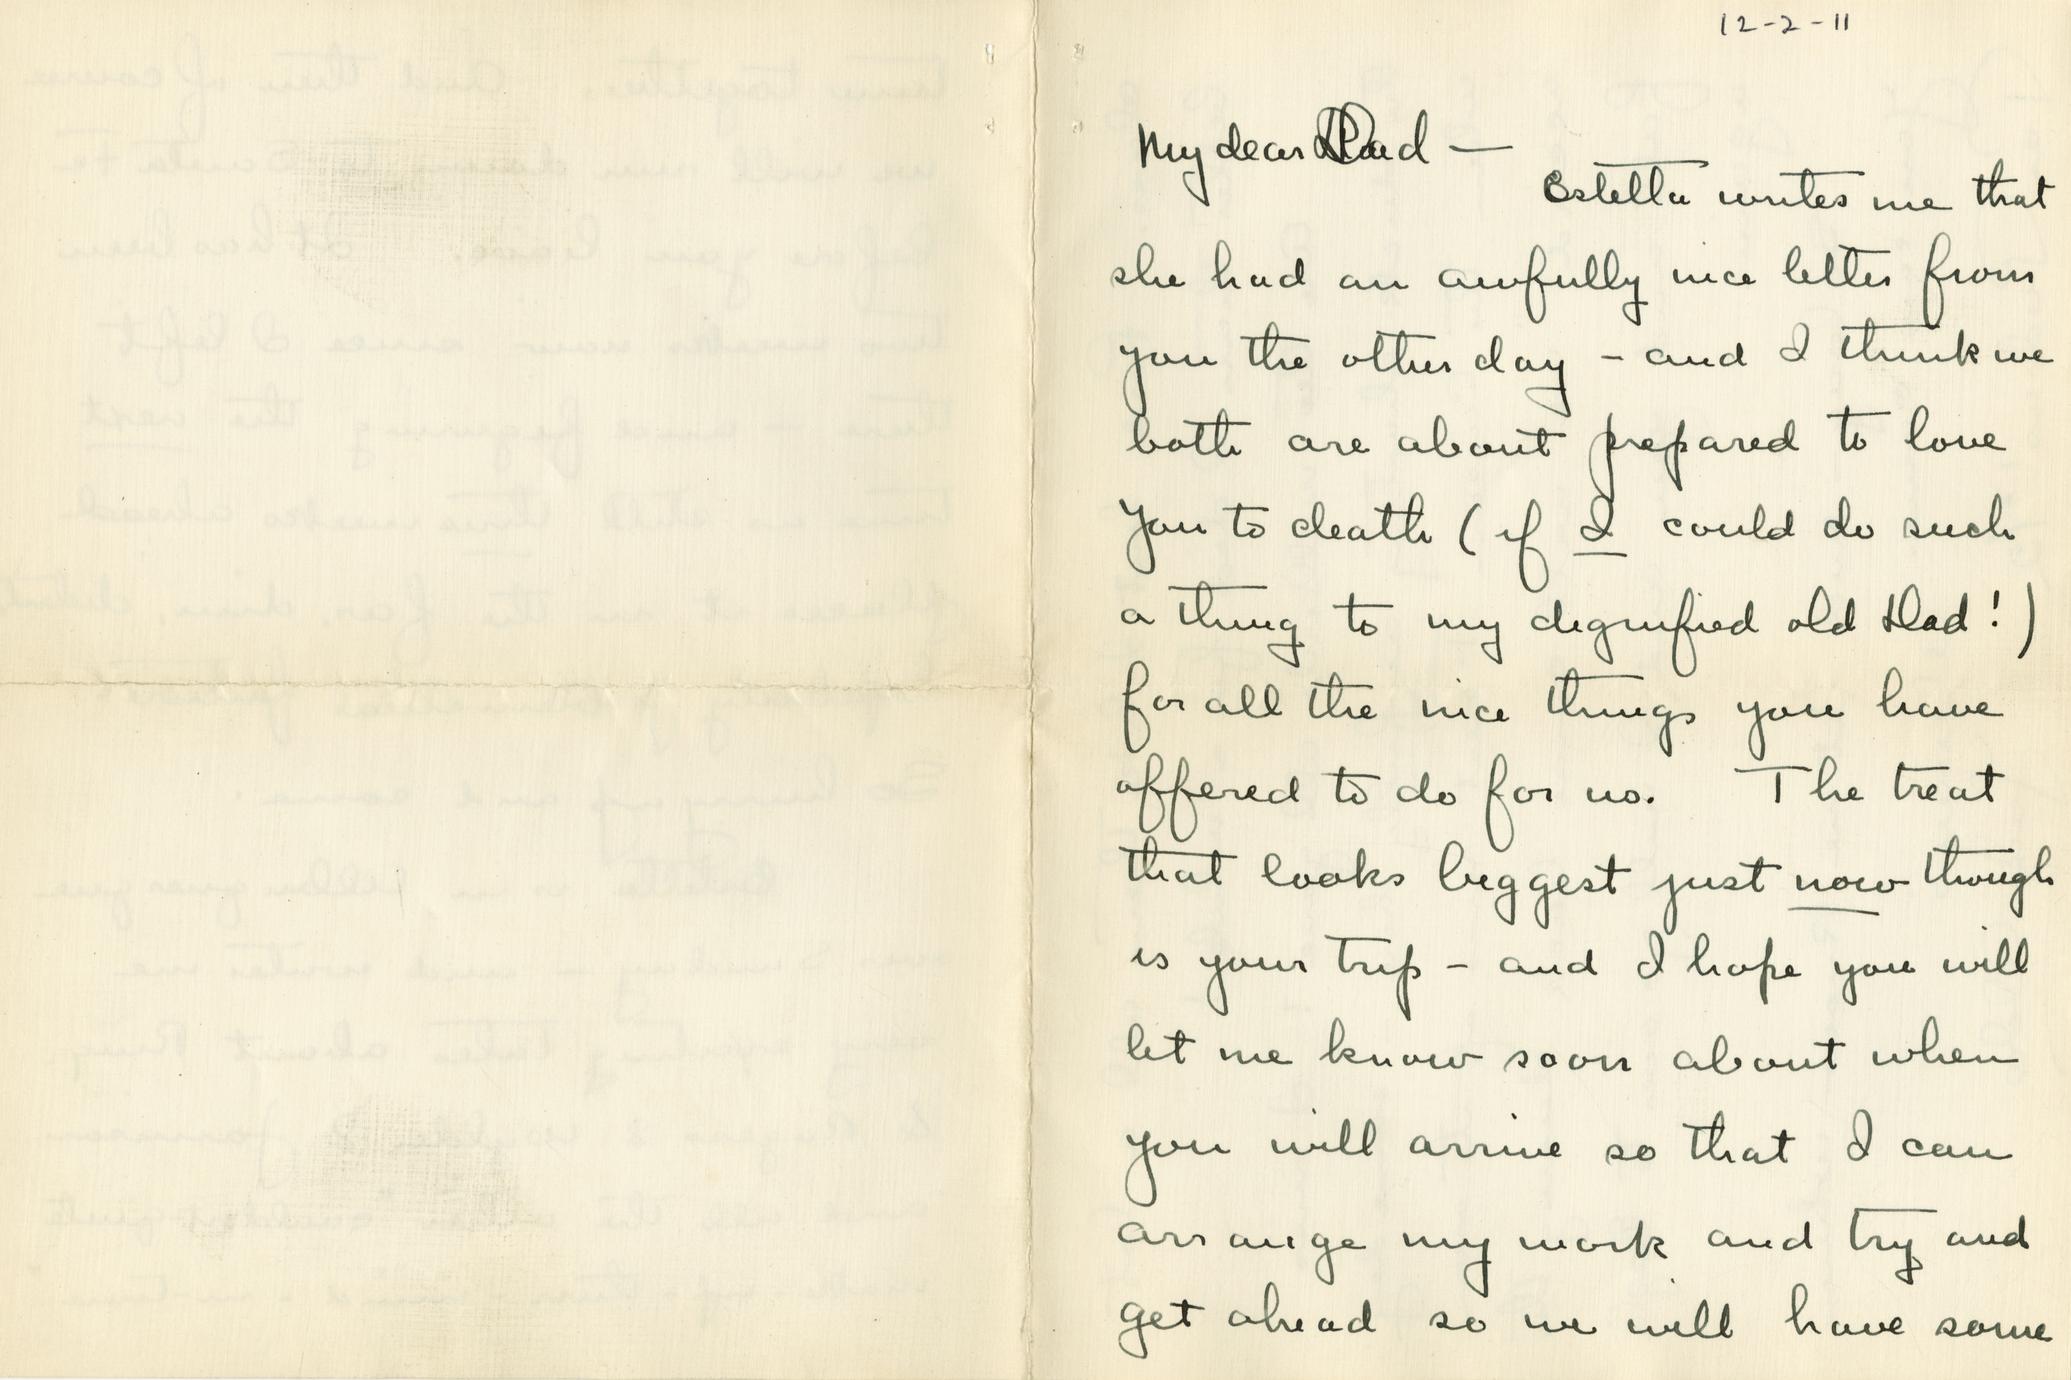 12-2-11
My dear Dad —
Estella writes me that
she had an awfully nice letter from
you the other day - and I think we
both are about prepared to love
you to death (if I could do such
a thing to my dignified old Dad!)
for all the nice things you have
offered to do for us. The treat
that looks biggest just now though
is your trip - and I hope you will
let me know soon about when
you will arrive so that I can
arrange my work and try and
get ahead so we will have some